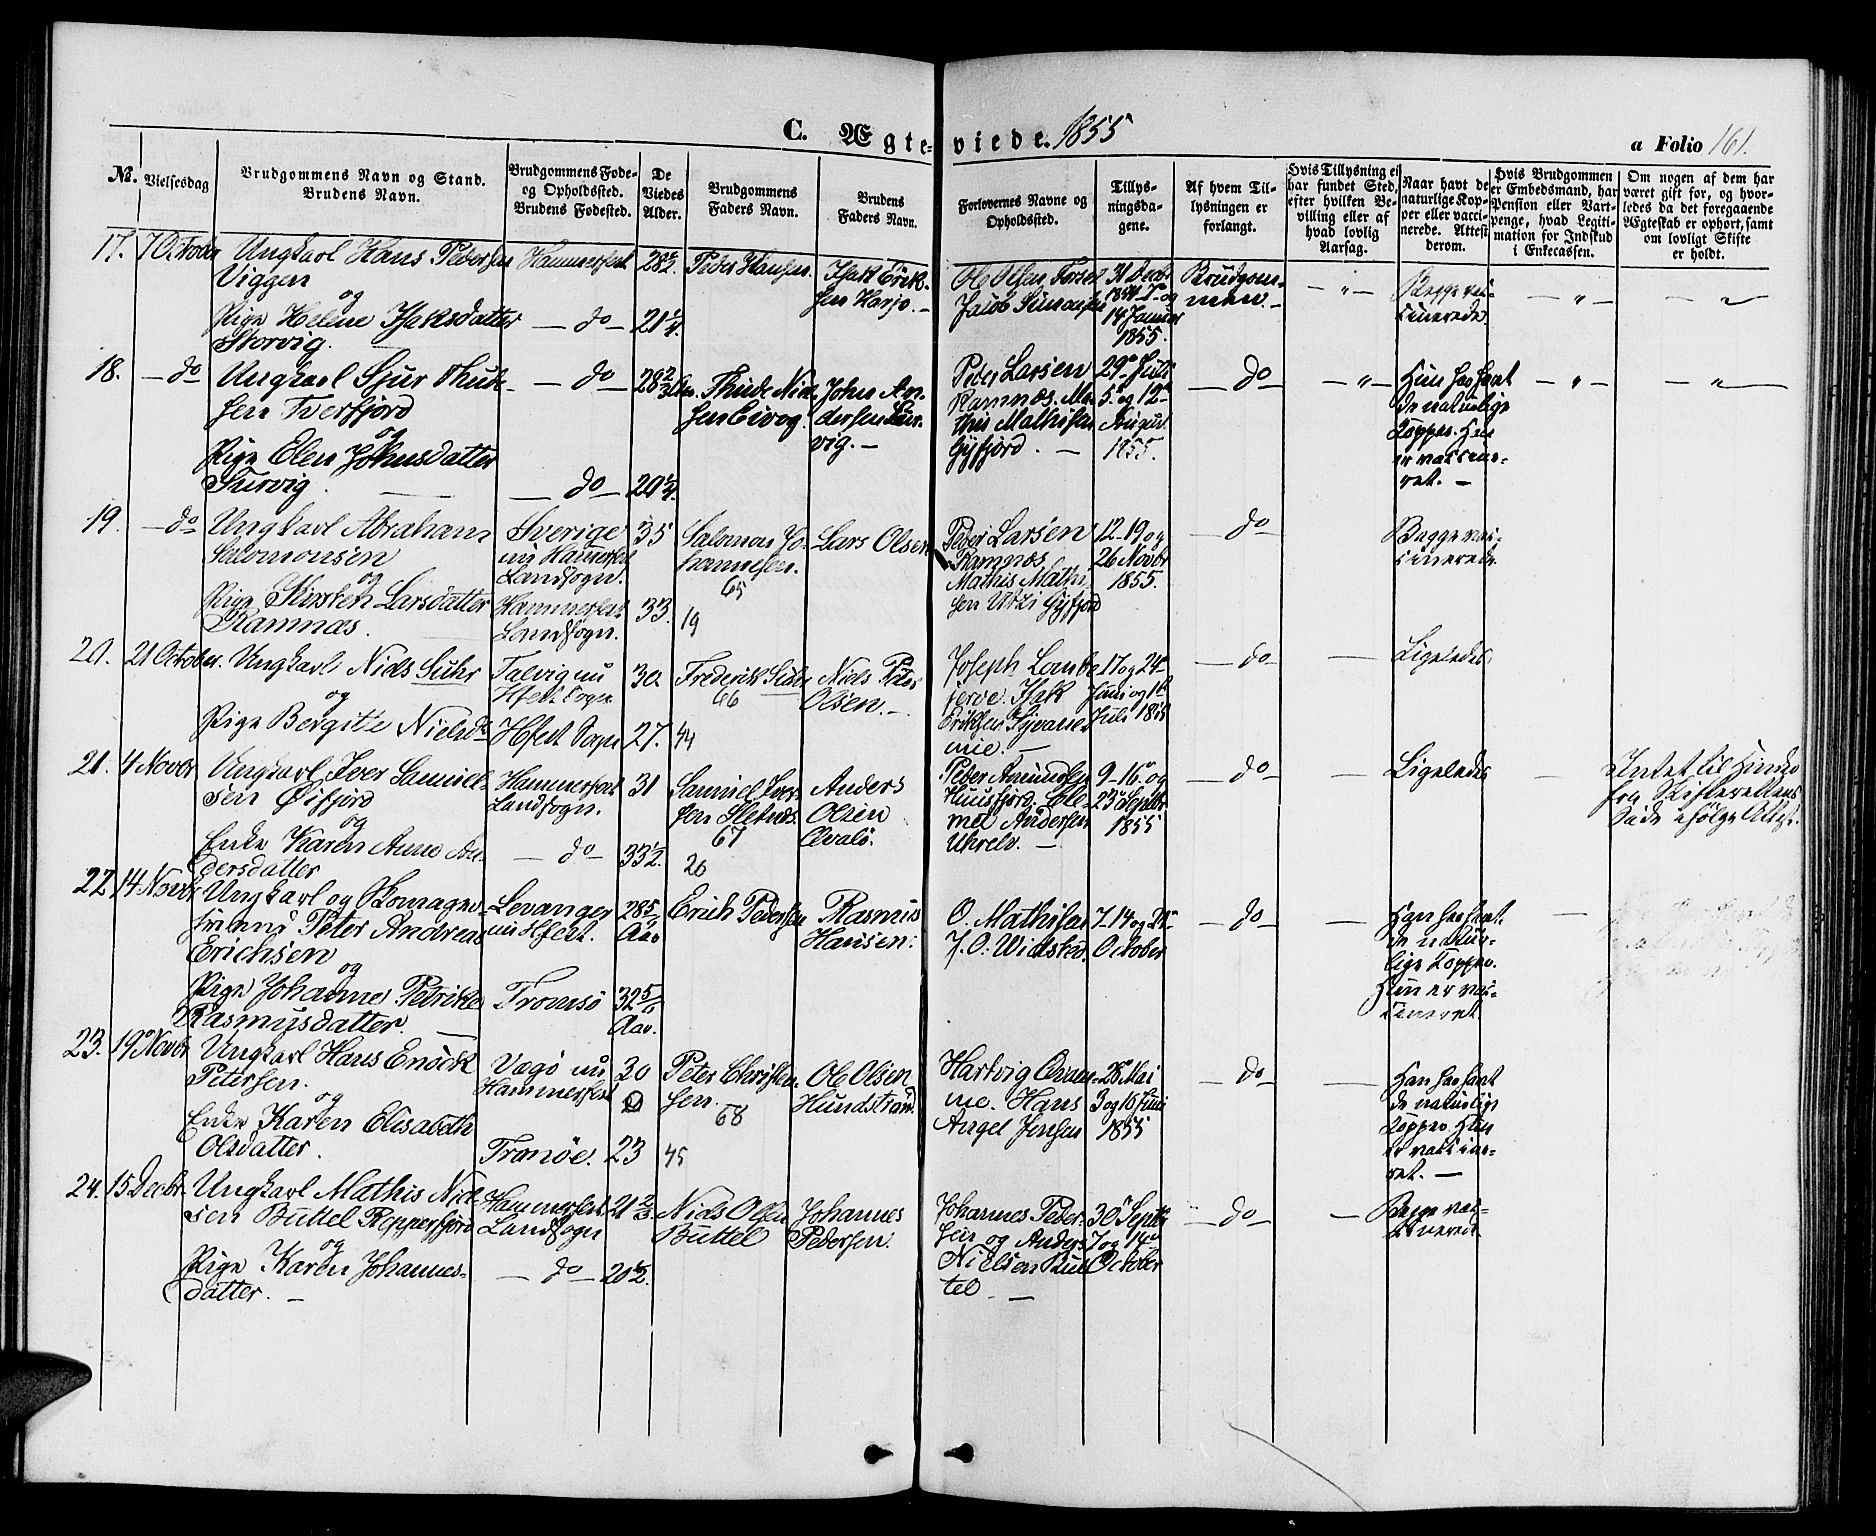 C. Ægteviede. 1855
a Folio 161.
No.
Vielsesdag
Brudgommens Navn og Stand.
Brudens Navn.
Brudgommens Føde-
og Opholdssted.
Brudens Fødested.
De
Viedes
Alder.
Brudgommens
Faders Navn.
Brudens
Faders Navn.
Forlovernes Navne og
Opholdssted.
Tillys-
ningsda-
gene.
Af hvem Til-
lysningen er
forlangt.
Hvis Tillysning ei
har fundet Sted,
efter hvilken Be-
villing eller af
hvad lovlig
Aarsag.
Naar havt de
naturlige Kop-
per eller vacci-
nerede. Attest
derom.
Hvis Brudgommen
er Embedsmand, har
Pension eller Vart-
penge, hvad Legiti-
mation for Indskud
i Enkecassen.
Om nogen af dem har
været gift før, og hvor-
ledes da det foregaaende
Ægteskab er ophørt, samt
om lovligt Skifte
er holdt.
17. 7 October
Ungkarl Hans Pedersen
Viggen
og
Pige Helene Isaksdatter
Storvig.
Hammerfest
— do —
28 1/2.
21 1/4.
Peder Hansen.
Isak Erik-
sen Harjo. —
Ole Olsen
Jacob Simonsen
31 Decbr
1854 7de og
14 Januar
1855.
Brudgom-
men. —
— " —
Begge vac-
cinerede.
— " —
— " —
18. — do —
Ungkarl Sjur Thude-
sen Tverfjord
og
Pige Elen Johnsdatter
Turvig.
— do —
— do —
28 2/3
20 1/4.
Thude Niel-
sen Eivog.
John An-
dersen
vig. —
Peder Larsen
Ramnæs. Ma-
this Mathisen
Gyfjord. —
29de Juli
5. og 12te
August
1855.
— do —
— " —
Hun har havt
de naturlige
Kopper. Han
er vaccine-
ret. —
— " —
— " —
19. — do —
Ungkarl Abraham
Salomonsen
og
Pige Kirsten Larsdatter
Ramnæs.
Sverige
nu Hammerfest
Landsogn.
Hammerfest
Landsogn.
35
33.
Salomon Jo-
hannesen.
65
19
Lars Olsen
Peder Larsen
Ramnæs
Mathis Mathi-
sen Utsi Gyfjord
12- 19 og
26 Novbr
1855.
— do —
Begge vac-
cinerede.
20. 21 October.
Ungkarl Niels Suhr
og
Pige Bergitte Nielsdr
Talvig nu
Hfest Sogn
Hfest Sogn
30.
27.
Frederik Suhr
66
44
Niels Peter
Olsen. —
Joseph Lamb-
jerve. Isak
Eriksen
mie. —
17 og 24de
Juni og 1ste
Juli 1855
— do —
—
Ligeledes
21. 4 Novbr
Ungkarl Iver Samuel-
sen Øifjord
og
Enke Karen Anne An-
dersdatter
Hammerfest
Landsogn.
— do —
31
33 1/2.
Samuel Iver-
sen Sletnæs.
67
20
Anders
Olsen
Qvalø.
Peder Amundsen
Huusfjord. Ele-
mei Andersen
9- 16de og
23de Septbr
1855
— do —
—
Ligeledes
—
Intet til Hinder
fra Skifterettens
Side ifølge Attest.
22 14 Novbr
Ungkarl og Skomager-
svend Peter Andreas
Erichsen
og
Pige Johanne Petrikke
Rasmusdatter. —
Levanger
nu Hfest.
Tromsø
28 5/12
Aar
32 5/12
Aar.
Erich Pedersen
Rasmus
Hansen.
O. Mathisen
J. O. Widsteen.
7- 14 og 21de
October
— do —
—
Han har havt
de natur-
lige Kopper.
Hun er vac-
cineret.
—
23. 19de Novbr
Ungkarl Hans Enock
Petersen.
og
Enke Karen Elisabeth
Olsdatter.
Vagø nu
Hammerfest
Tranøe.
30
23
Peter Christen-
sen.
68
45
Ole Olsen
Hundstrand
Hartvig Qvam-
me. Hans
Angel Jensen
28de Mai
3 og 10 Juni
1855
— do —
—
Han har havt
de naturlige
Kopper Hun
er vaccine-
ret. —
24. 15 Decbr.
Ungkarl Mathis Niel-
sen Buttel Repperfjord
og
Pige Karen Johannes-
datter. —
Hammerfest
Landsogn
— do —
21 2/3
20 1/2.
Niels Olsen
Buttel
Johannes
Pedersen.
Johannes Peder-
sen og Anders
Nielsen But-
tel —
30de Septbr
7 og 14de
October
— do —
—
Begge vac-
cinerede.